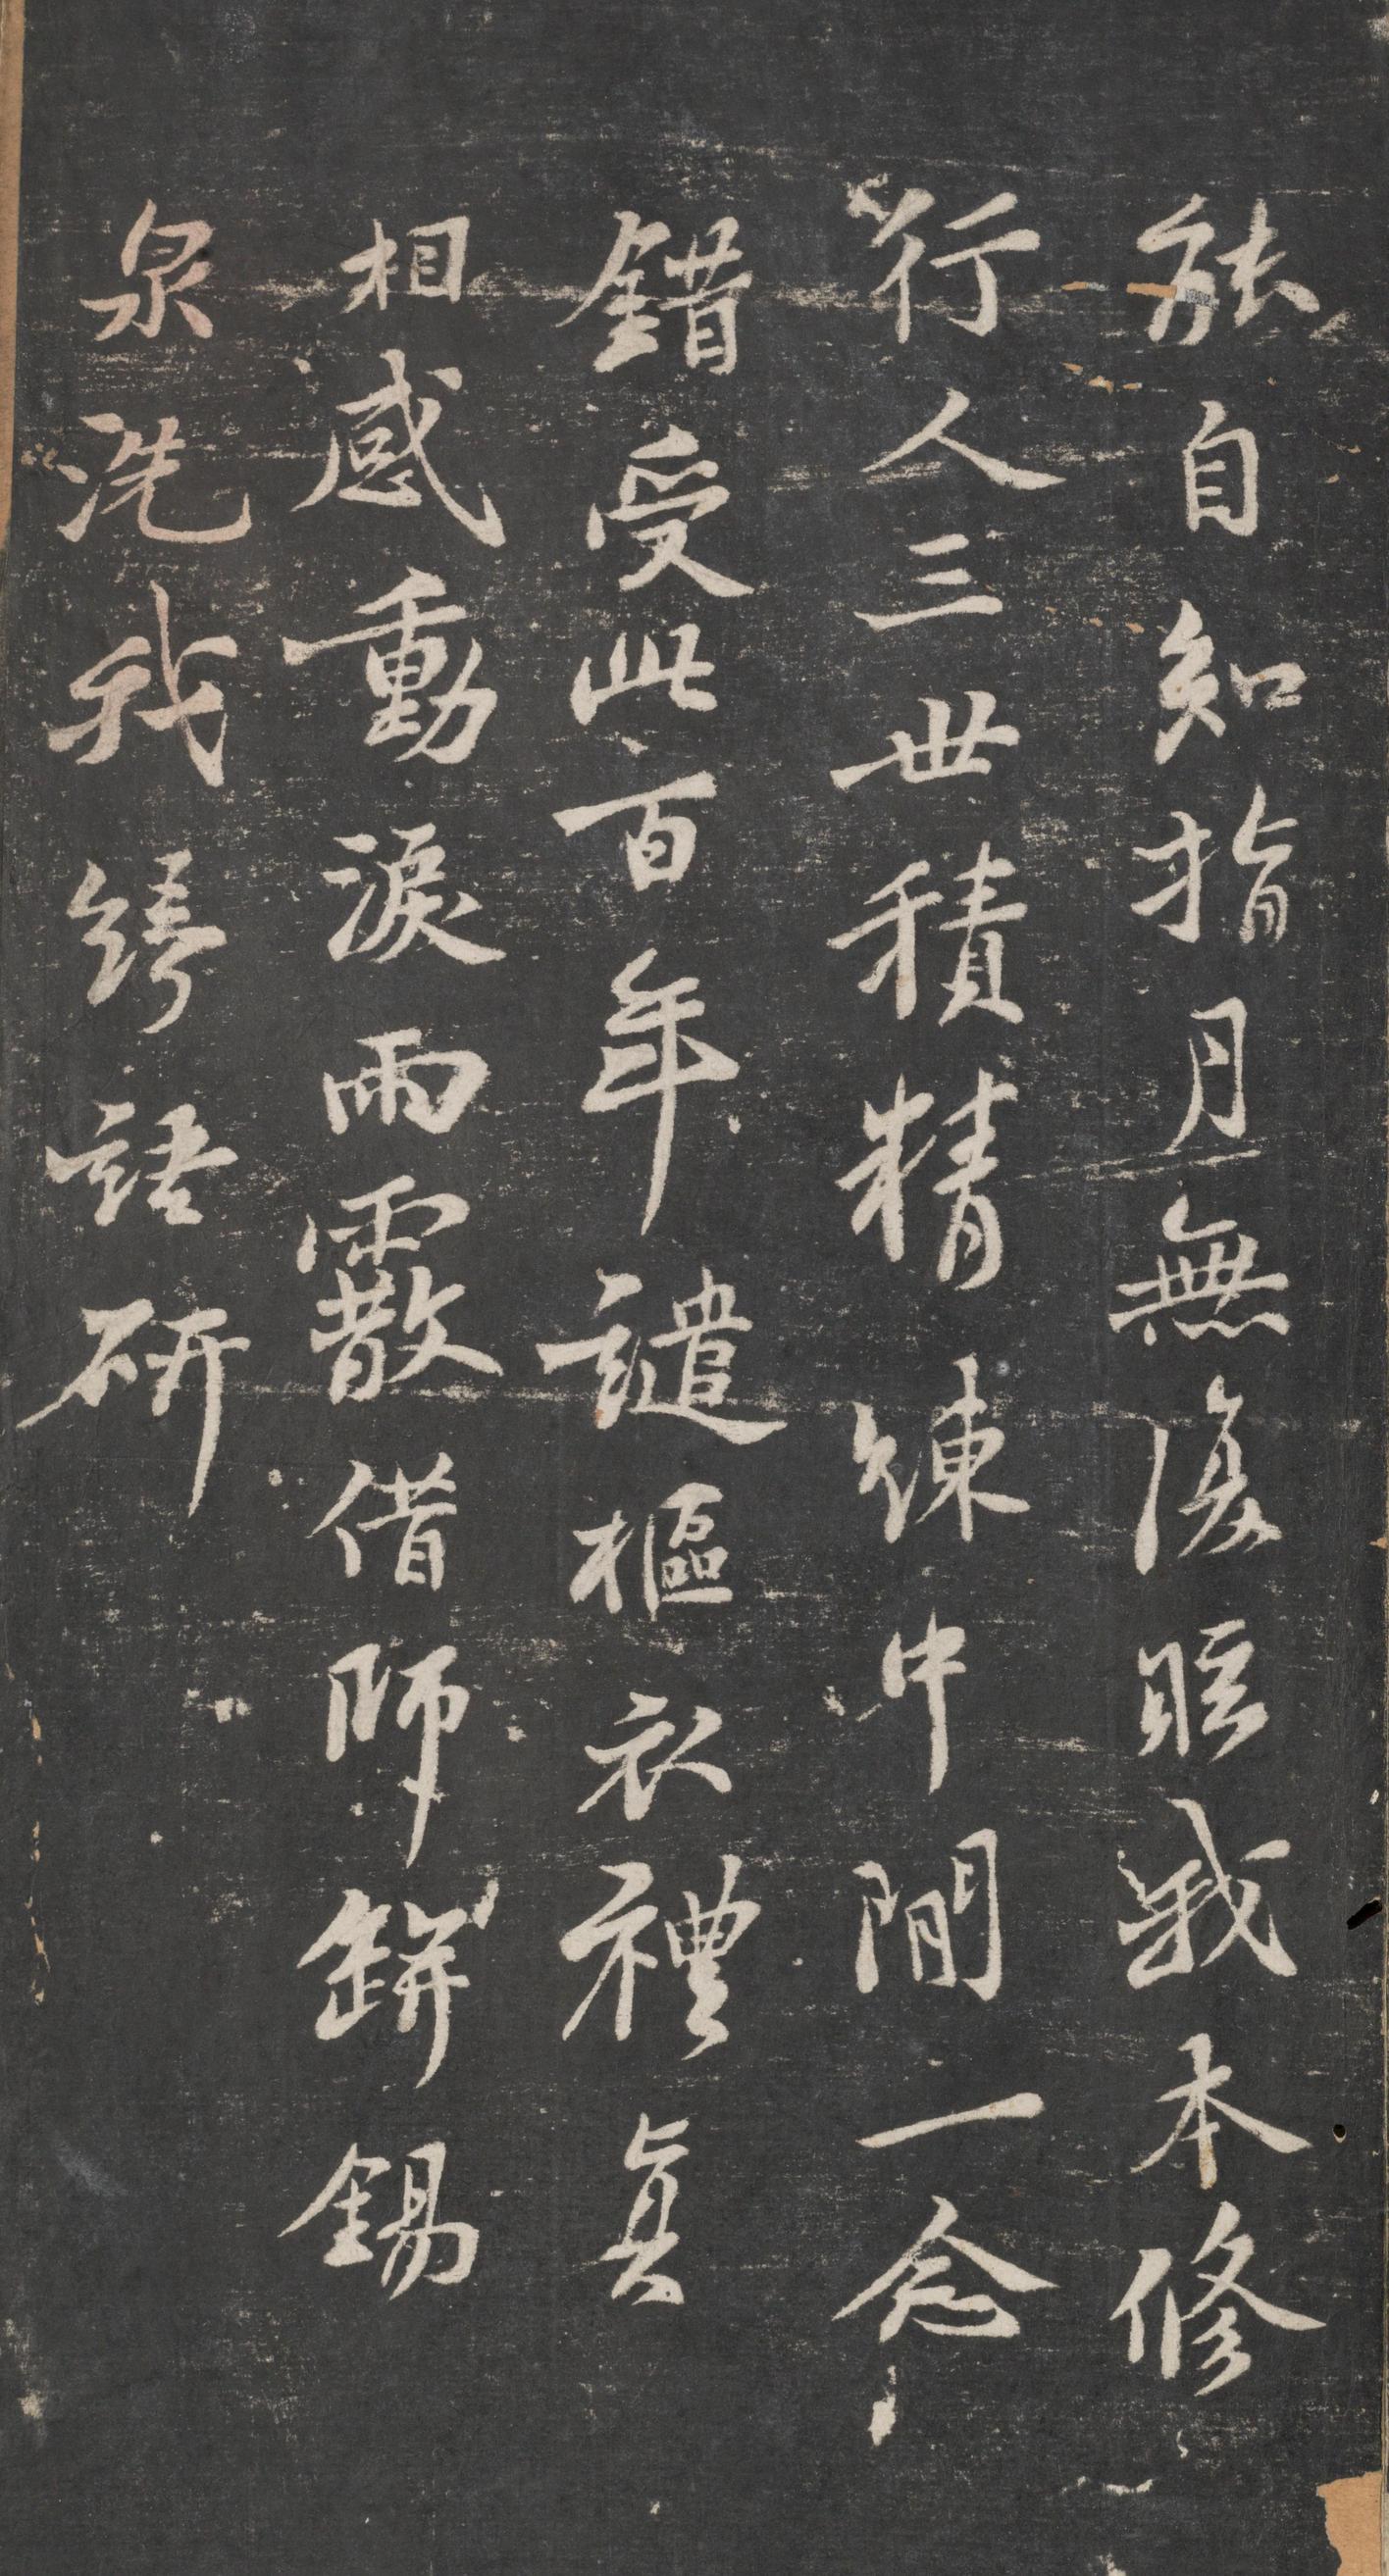 能自知指月無復眩我本修
行人三世積精練中間一念
錯受此百年譴樞衣禮真
相感動淚雨霰借師錊錫
泉洗我綺語硏